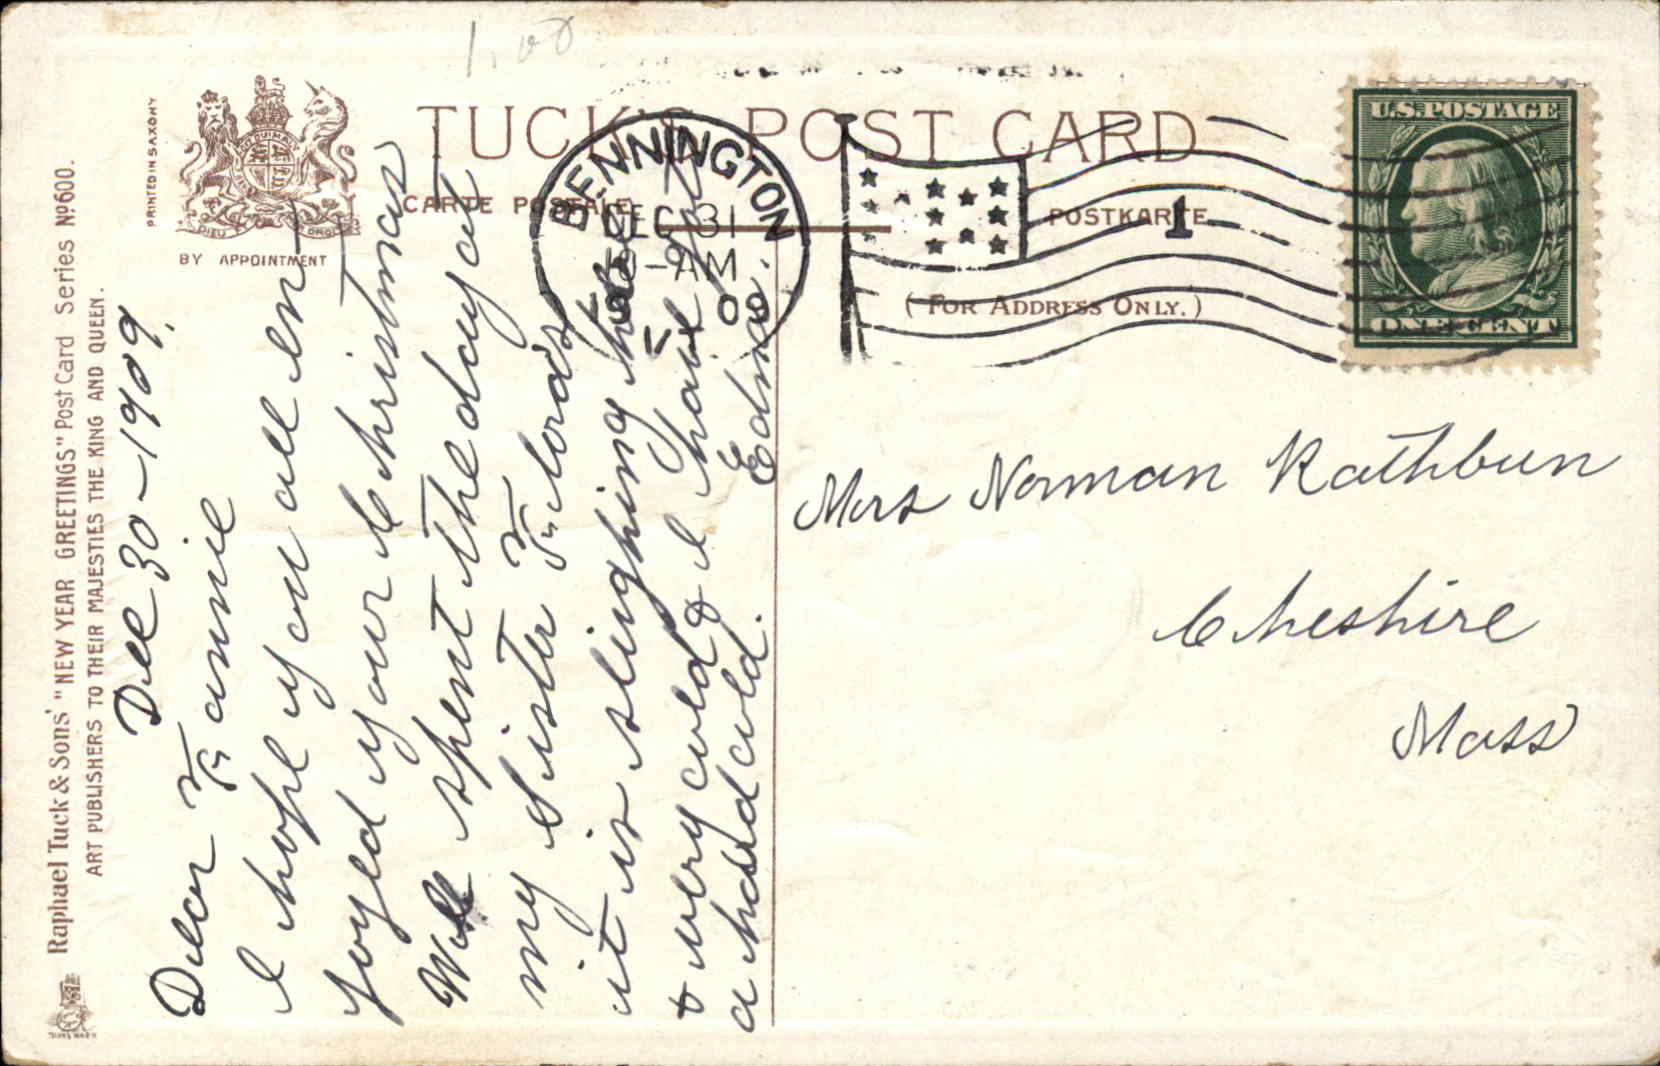 1.00
TUCK'S POST CARD
CARTE POSTALE
POSTKARTE
(FOR ADDRESS ONLY.)
PRINTED IN SAXONY
DIEU ET MON DROIT
BY APPOINTMENT
BENNINGTON
DEC 31
-AM
1
U.S. POSTAGE
ONE CENT
Raphael Tuck & Sons' "NEW YEAR GREETINGS" Post Card Series No 600.
ART PUBLISHERS TO THEIR MAJESTIES THE KING AND QUEEN.
Dec 30-1909.
Dear Fannie
I hope you all en-
joyed your Christmas
We spent the day at
my Sister Flora's
it is sleighing here
& very cold & I have got
a hard cold. Edna.
Mrs Norman Rathbun
Cheshire
Mass